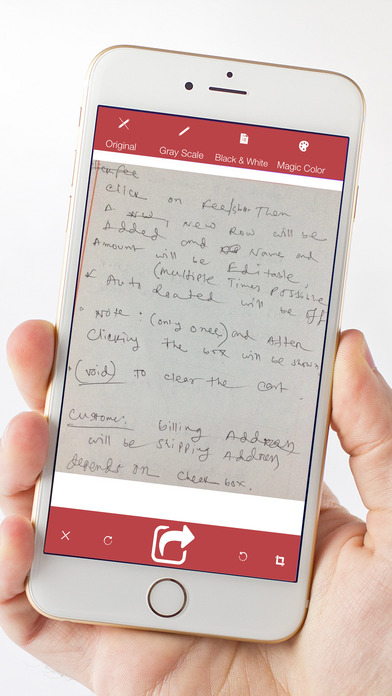 Original
Gray Scale
Black & White
Magic Color
click on Fee/ Then
A new Row will be
Added and Name and
Amount will be Editable,
(multiple Times possible
Auto will be Off
Note. (only once) and After
Clicking the box will be shown
(void) To clear the cart.
Customer: billing Address
will be shipping Address
depends on check box.